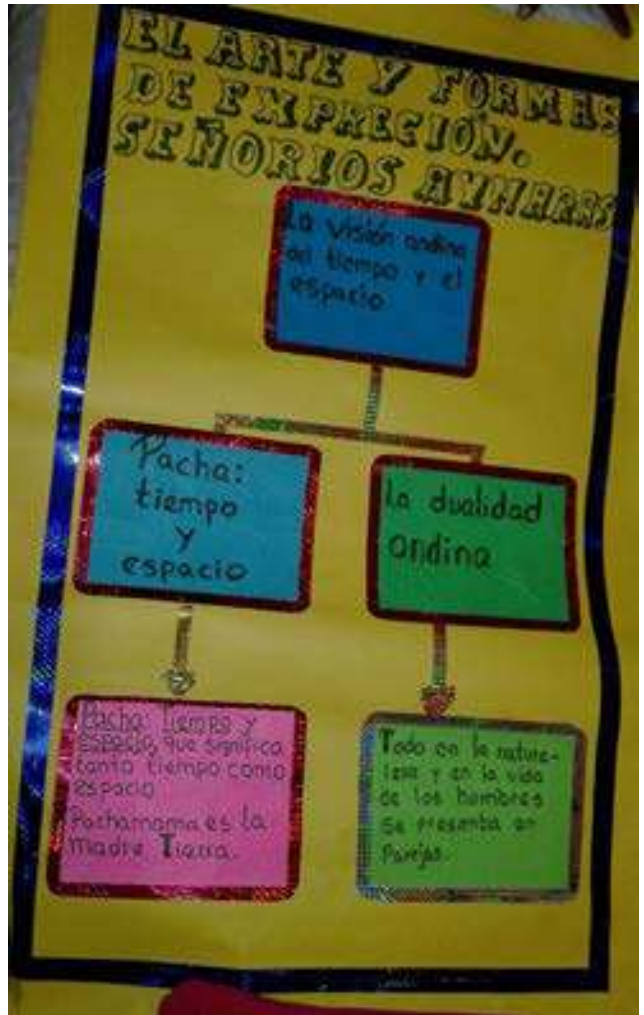 EL ARTE Y FORMAS
DE EXPRECIÓN.
SEÑORIOS AYMARAS
La visión andina
del tiempo y el
espacio
Pacha:
tiempo
y
espacio
la dualidad
andina
Pacha: Tiempo y
espacio, que significa
tanto tiempo como
espacio
Pachamama es la
madre Tierra.
Todo en la nature-
leza y en la vida
de los hombres
se presenta en
Parejas.